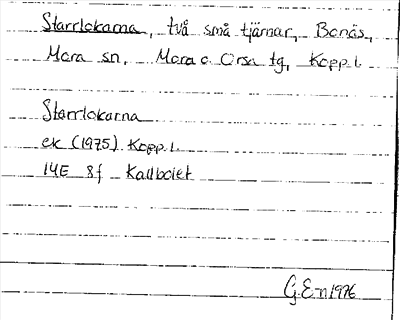 Starrlokarna, två små tjärnar, Bonäs,
Mora sn, Mora o. Orsa tg, Kopp.l.
Starrlokarna
ek (1975) Kopp.l.
14E 8f Kallbolet
G.E-n 1976